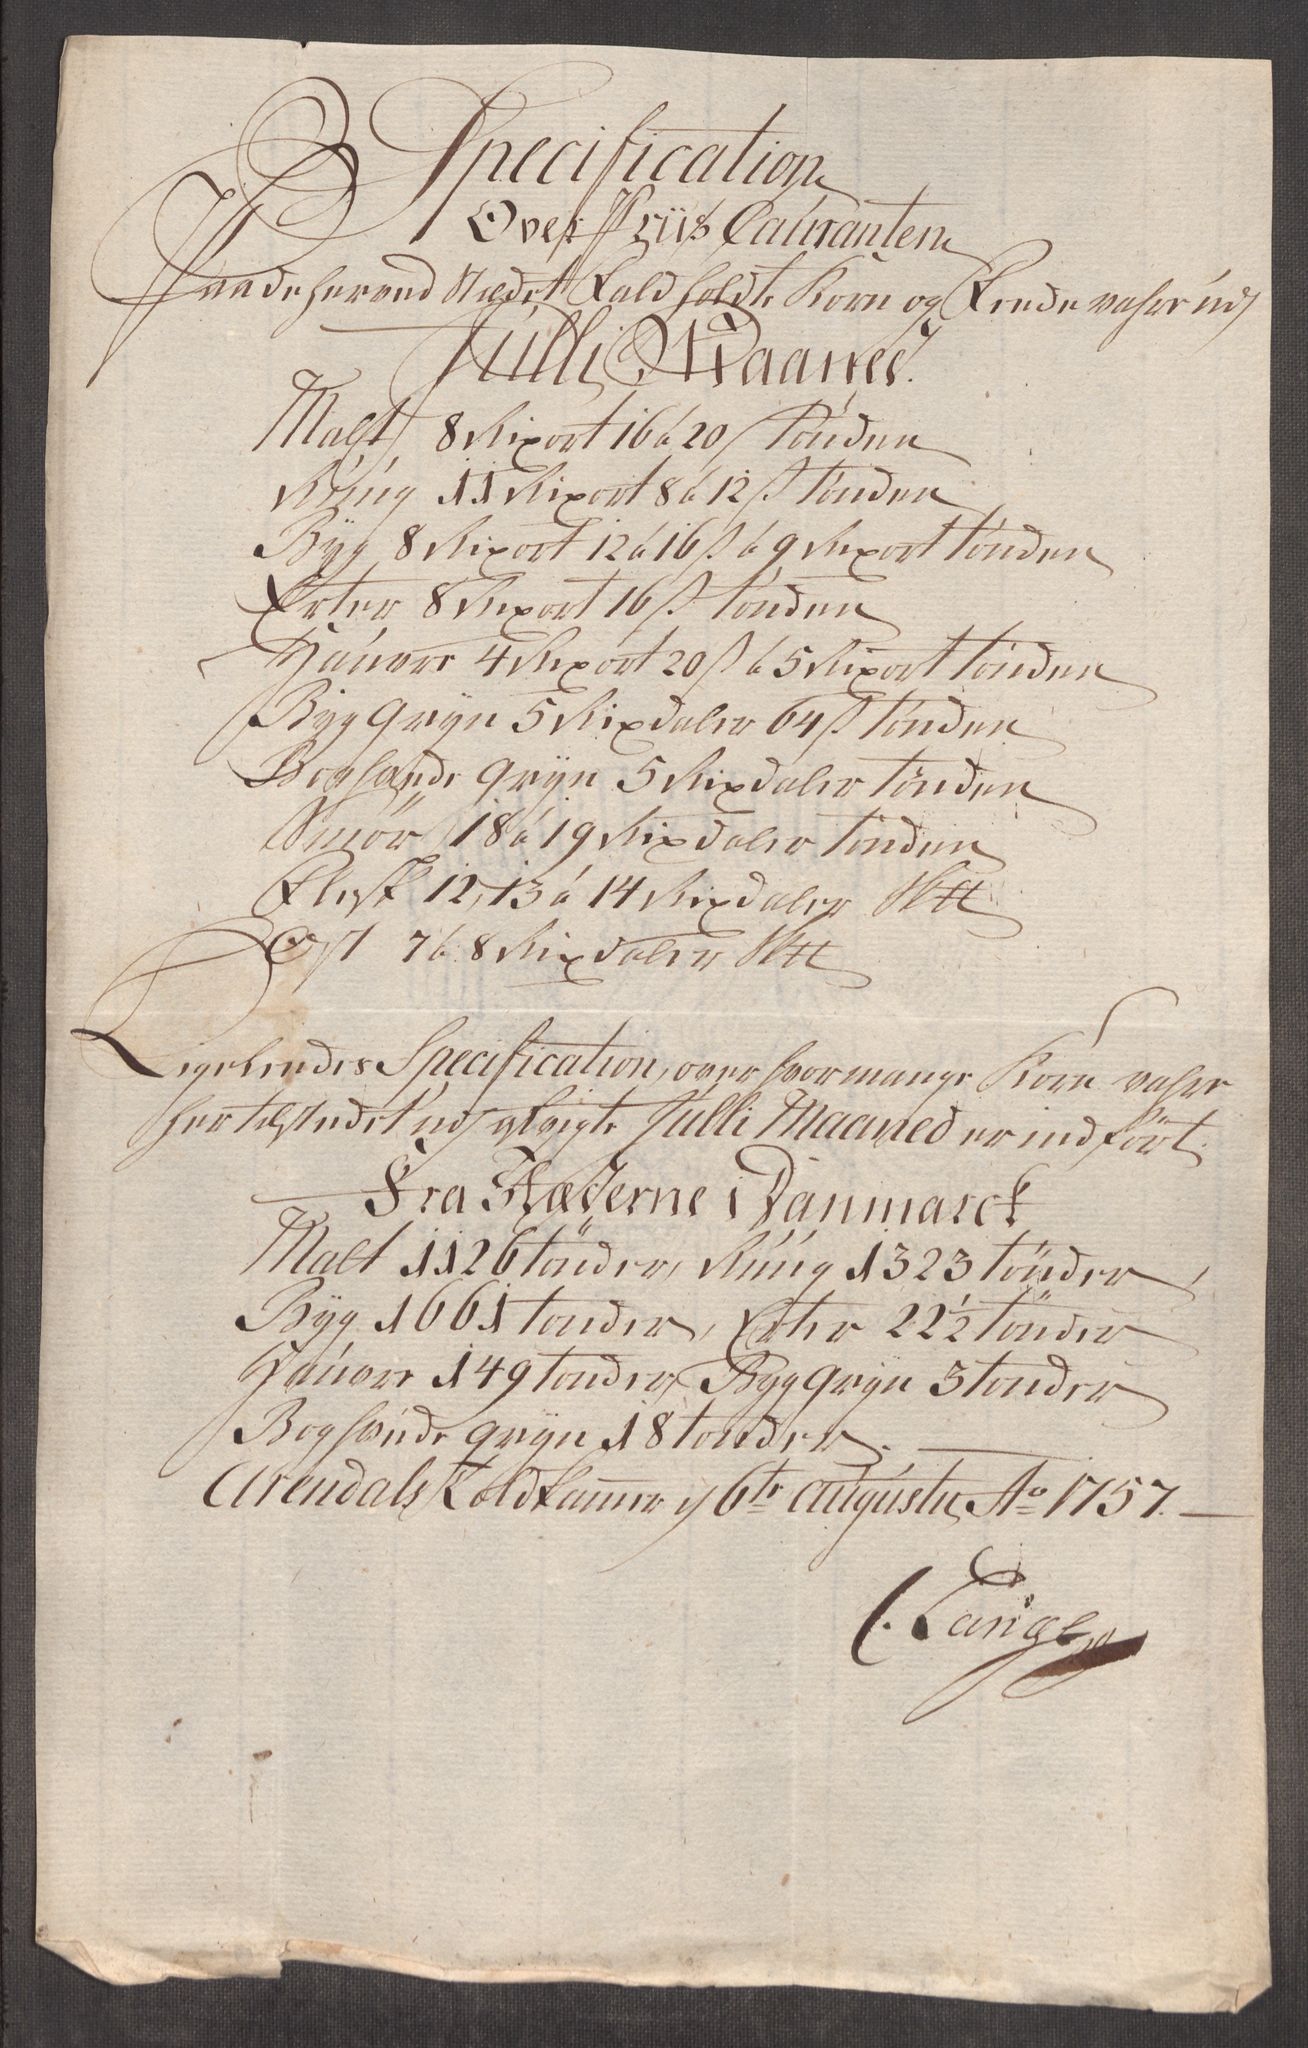 Specification
Over Priis Couranten
Paa de her ved Stædet Fald holdte Korn og Fende vahre udj
Julli Maaned.
Malt 8 Rixort 16 á 20 s Tönden
Rúúg 11 Rixort 8 á 12 s tönden
Byg 8 Rixort 12 á 16 s á 9 Rixort tönden
Erter 8 Rixort 16 s tönden
Haúvre 4 Rixort 20 s á 5 Rixort tönden
Byg gryn 5 Rixdaler 64 s tönden
Boghvede gryn 5 Rixdaler tönden
Smör 18 á 19 Rixdaler tönden
Flesk 12, 13 á 14 Rixdaler
Ost 7 á 8 Rixdaler
Ligeledes Specification, over hvor mange Korn vahre
her til Stædet udj afvigte Julli Maaned er ind fört.
Fra Stæderne i Danmarck
Malt 1126 tönder, Rúúg 1323 tönder,
Byg 1661 tönder, Erter 22½ tönder
Haúvre 149 tönder, Byg gryn 5 tönder
Boghvede gryn 18 tönder.
Arendals Toldkammer d 6te Augústy Ao 1757.
C. Lange